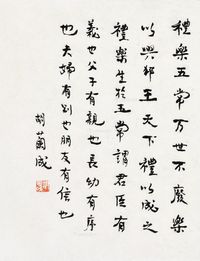 禮樂五常万世不廢樂
以興邦王天下禮以成之
禮樂生於五常謂君臣有
義也父子有親也長幼有序
也夫婦有別也朋友有信也
胡蘭成